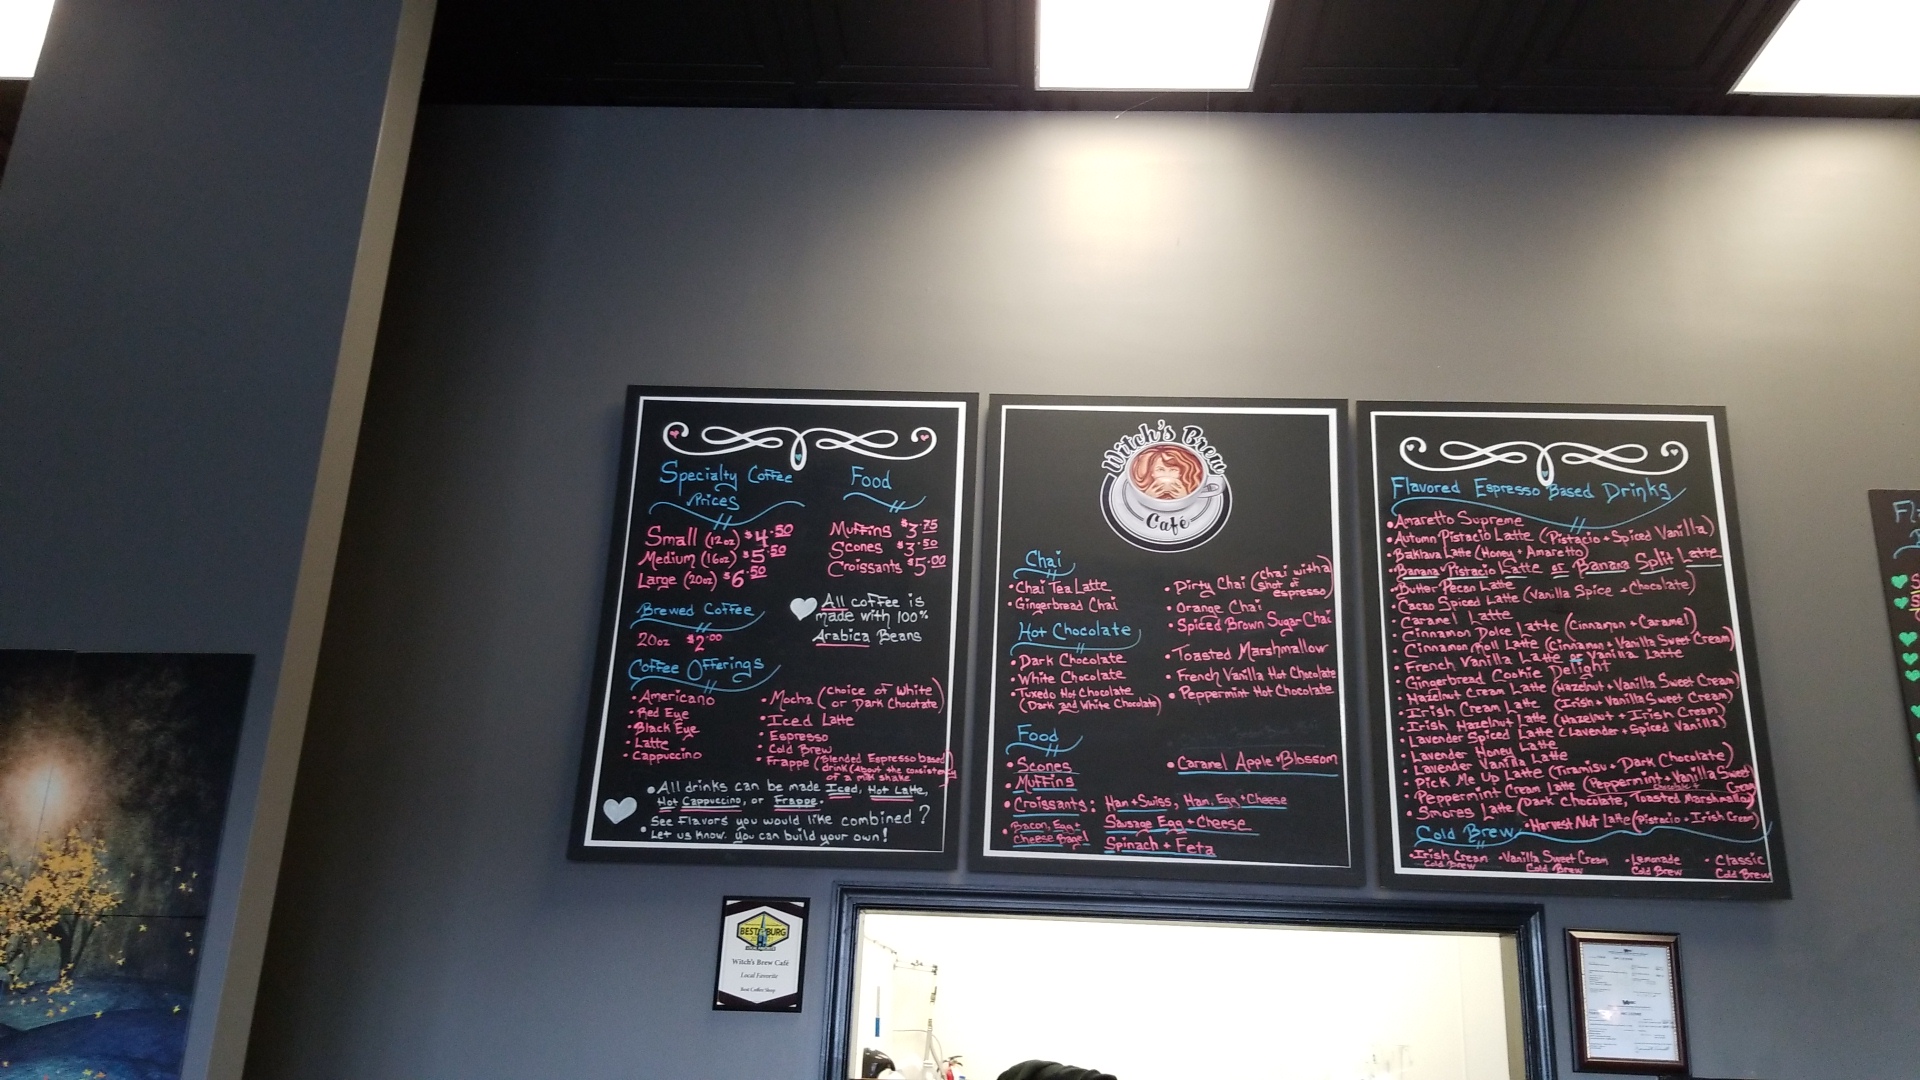 Specialty Coffee
Prices
Small (12oz) $4.50
Medium (16oz) $5.50
Large (20oz) $6.50
Food
Muffins $3.75
Scones $3.50
Croissants $5.00
Brewed Coffee
20oz $2.00
All coffee is
made with 100%
Arabica Beans
Coffee Offerings
• Americano
• Red Eye
• Black Eye
• Latte
• Cappuccino
• Mocha (Choice of White
or Dark Chocolate)
• Iced Latte
• Espresso
• Cold Brew
• Frappe (Blended Espresso based
drink (About the consistency
of a milk shake
• All drinks can be made Iced, Hot Latte,
Hot Cappuccino, or Frappe.
See Flavors you would like combined?
• Let us know. You can build your own!
Witch's Brew
Café
Chai
• Chai Tea Latte
• Gingerbread Chai
• Dirty Chai (Chai with a
shot of
espresso)
• Orange Chai
• Spiced Brown Sugar Chai
Hot Chocolate
• Dark Chocolate
• White Chocolate
• Tuxedo Hot Chocolate
(Dark and White Chocolate)
• Toasted Marshmallow
• French Vanilla Hot Chocolate
• Peppermint Hot Chocolate
Food
• Scones
• Muffins
• Croissants: Ham + Swiss, Ham, Egg + Cheese
• Bacon, Egg +
Cheese Bagel
Sausage Egg + Cheese
Spinach + Feta
• Caramel Apple Blossom
Flavored Espresso Based Drinks
• Amaretto Supreme
• Autumn Pistacio Latte (Pistacio + Spiced Vanilla)
• Baklava Latte (Honey + Amaretto)
• Banana Pistacio Latte or Banana Split Latte
• Butter Pecan Latte
• Cacao Spiced Latte (Vanilla Spice + Chocolate)
• Caramel Latte
• Cinnamon Dolce Latte (Cinnamon + Caramel)
• Cinnamon Roll Latte (Cinnamon + Vanilla Sweet Cream)
• French Vanilla Latte or Vanilla Latte
• Gingerbread Cookie Delight
• Hazelnut Cream Latte (Hazelnut + Vanilla Sweet Cream)
• Irish Cream Latte (Irish + Vanilla Sweet Cream)
• Irish Hazelnut Latte (Hazelnut + Irish Cream)
• Lavender Spiced Latte (Lavender + Spiced Vanilla)
• Lavender Honey Latte
• Lavender Vanilla Latte
• Pick Me Up Latte (Tiramisu + Dark Chocolate)
• Peppermint Cream Latte (Peppermint + Vanilla Sweet
Chocolate + Cream)
• Smores Latte (Dark Chocolate, Toasted Marshmallow)
• Harvest Nut Latte (Pistacio + Irish Cream)
Cold Brew
• Irish Cream
Cold Brew
• Vanilla Sweet Cream
Cold Brew
• Lemonade
Cold Brew
• Classic
Cold Brew
BEST BURG
Witch's Brew Café
Local Favorite
Best Coffee Shop